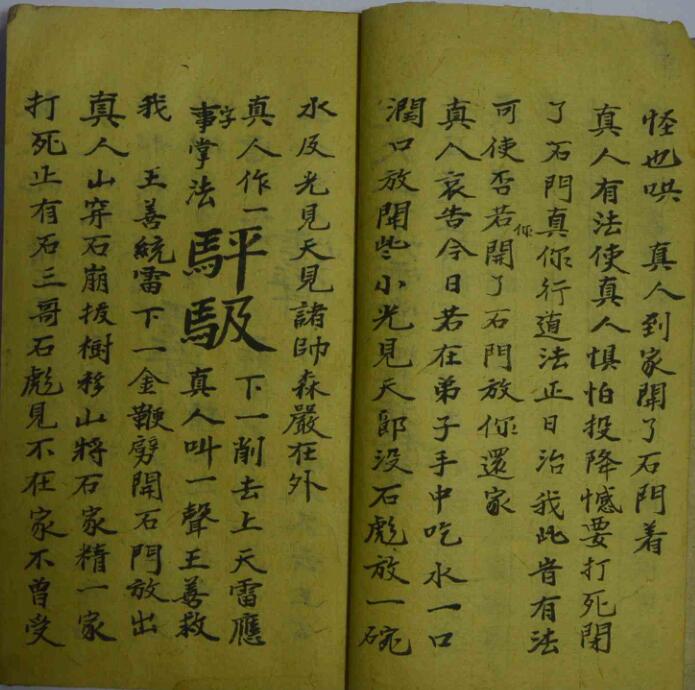 怪也哄　真人到家開了石門着
真人有法使真人惧怕投降憾要打死閉
了石門真你行道法正日治我此音有法
可使否若開了石門放你還家
你
真人哀告今日若在弟子手中吃水一口
潤口放開些小光見天郎没石彪放一碗
水反光見天見諸帥森嚴在外
真人作一字　下一削去上天雷應
事掌法　真人叫一聲王善救
我　王善統雷下一金鞭劈開石門放出
真人山穿石崩拔樹移山將石家精一家
打死止有石三哥石彪見不在家不曾受